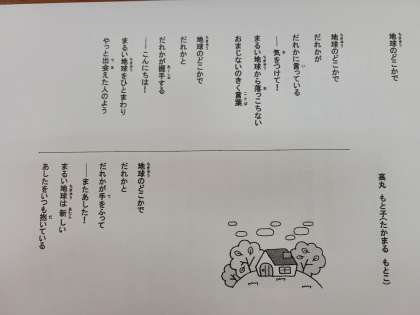 地球のどこかで
高丸 もと子(たかまる もとこ)
地球のどこかで
だれかが
だれかに言っている
――気をつけて!
まるい地球から落っこちない
おまじないのきく言葉
地球のどこかで
だれかと
だれかが握手する
――こんにちは!
まるい地球をひとまわり
やっと出会えた人のよう
地球のどこかで
だれかと
だれかが手をふって
――またあした!
まるい地球は新しい
あしたをいつも抱いている